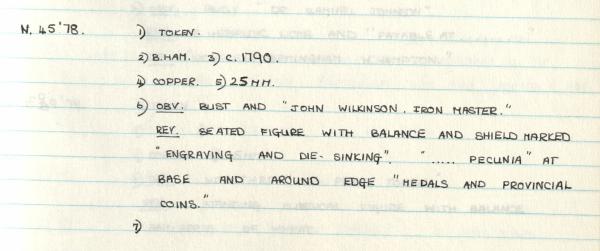 N. 45'78. 1) TOKEN.
2) B.HAM. 3) C. 1790.
4) COPPER. 5) 25 MM.
6) OBV. BUST AND "JOHN WILKINSON. IRON MASTER."
REV. SEATED FIGURE WITH BALANCE AND SHIELD MARKED
"ENGRAVING AND DIE-SINKING". "..... PECUNIA" AT
BASE AND AROUND EDGE "MEDALS AND PROVINCIAL
COINS."
7)